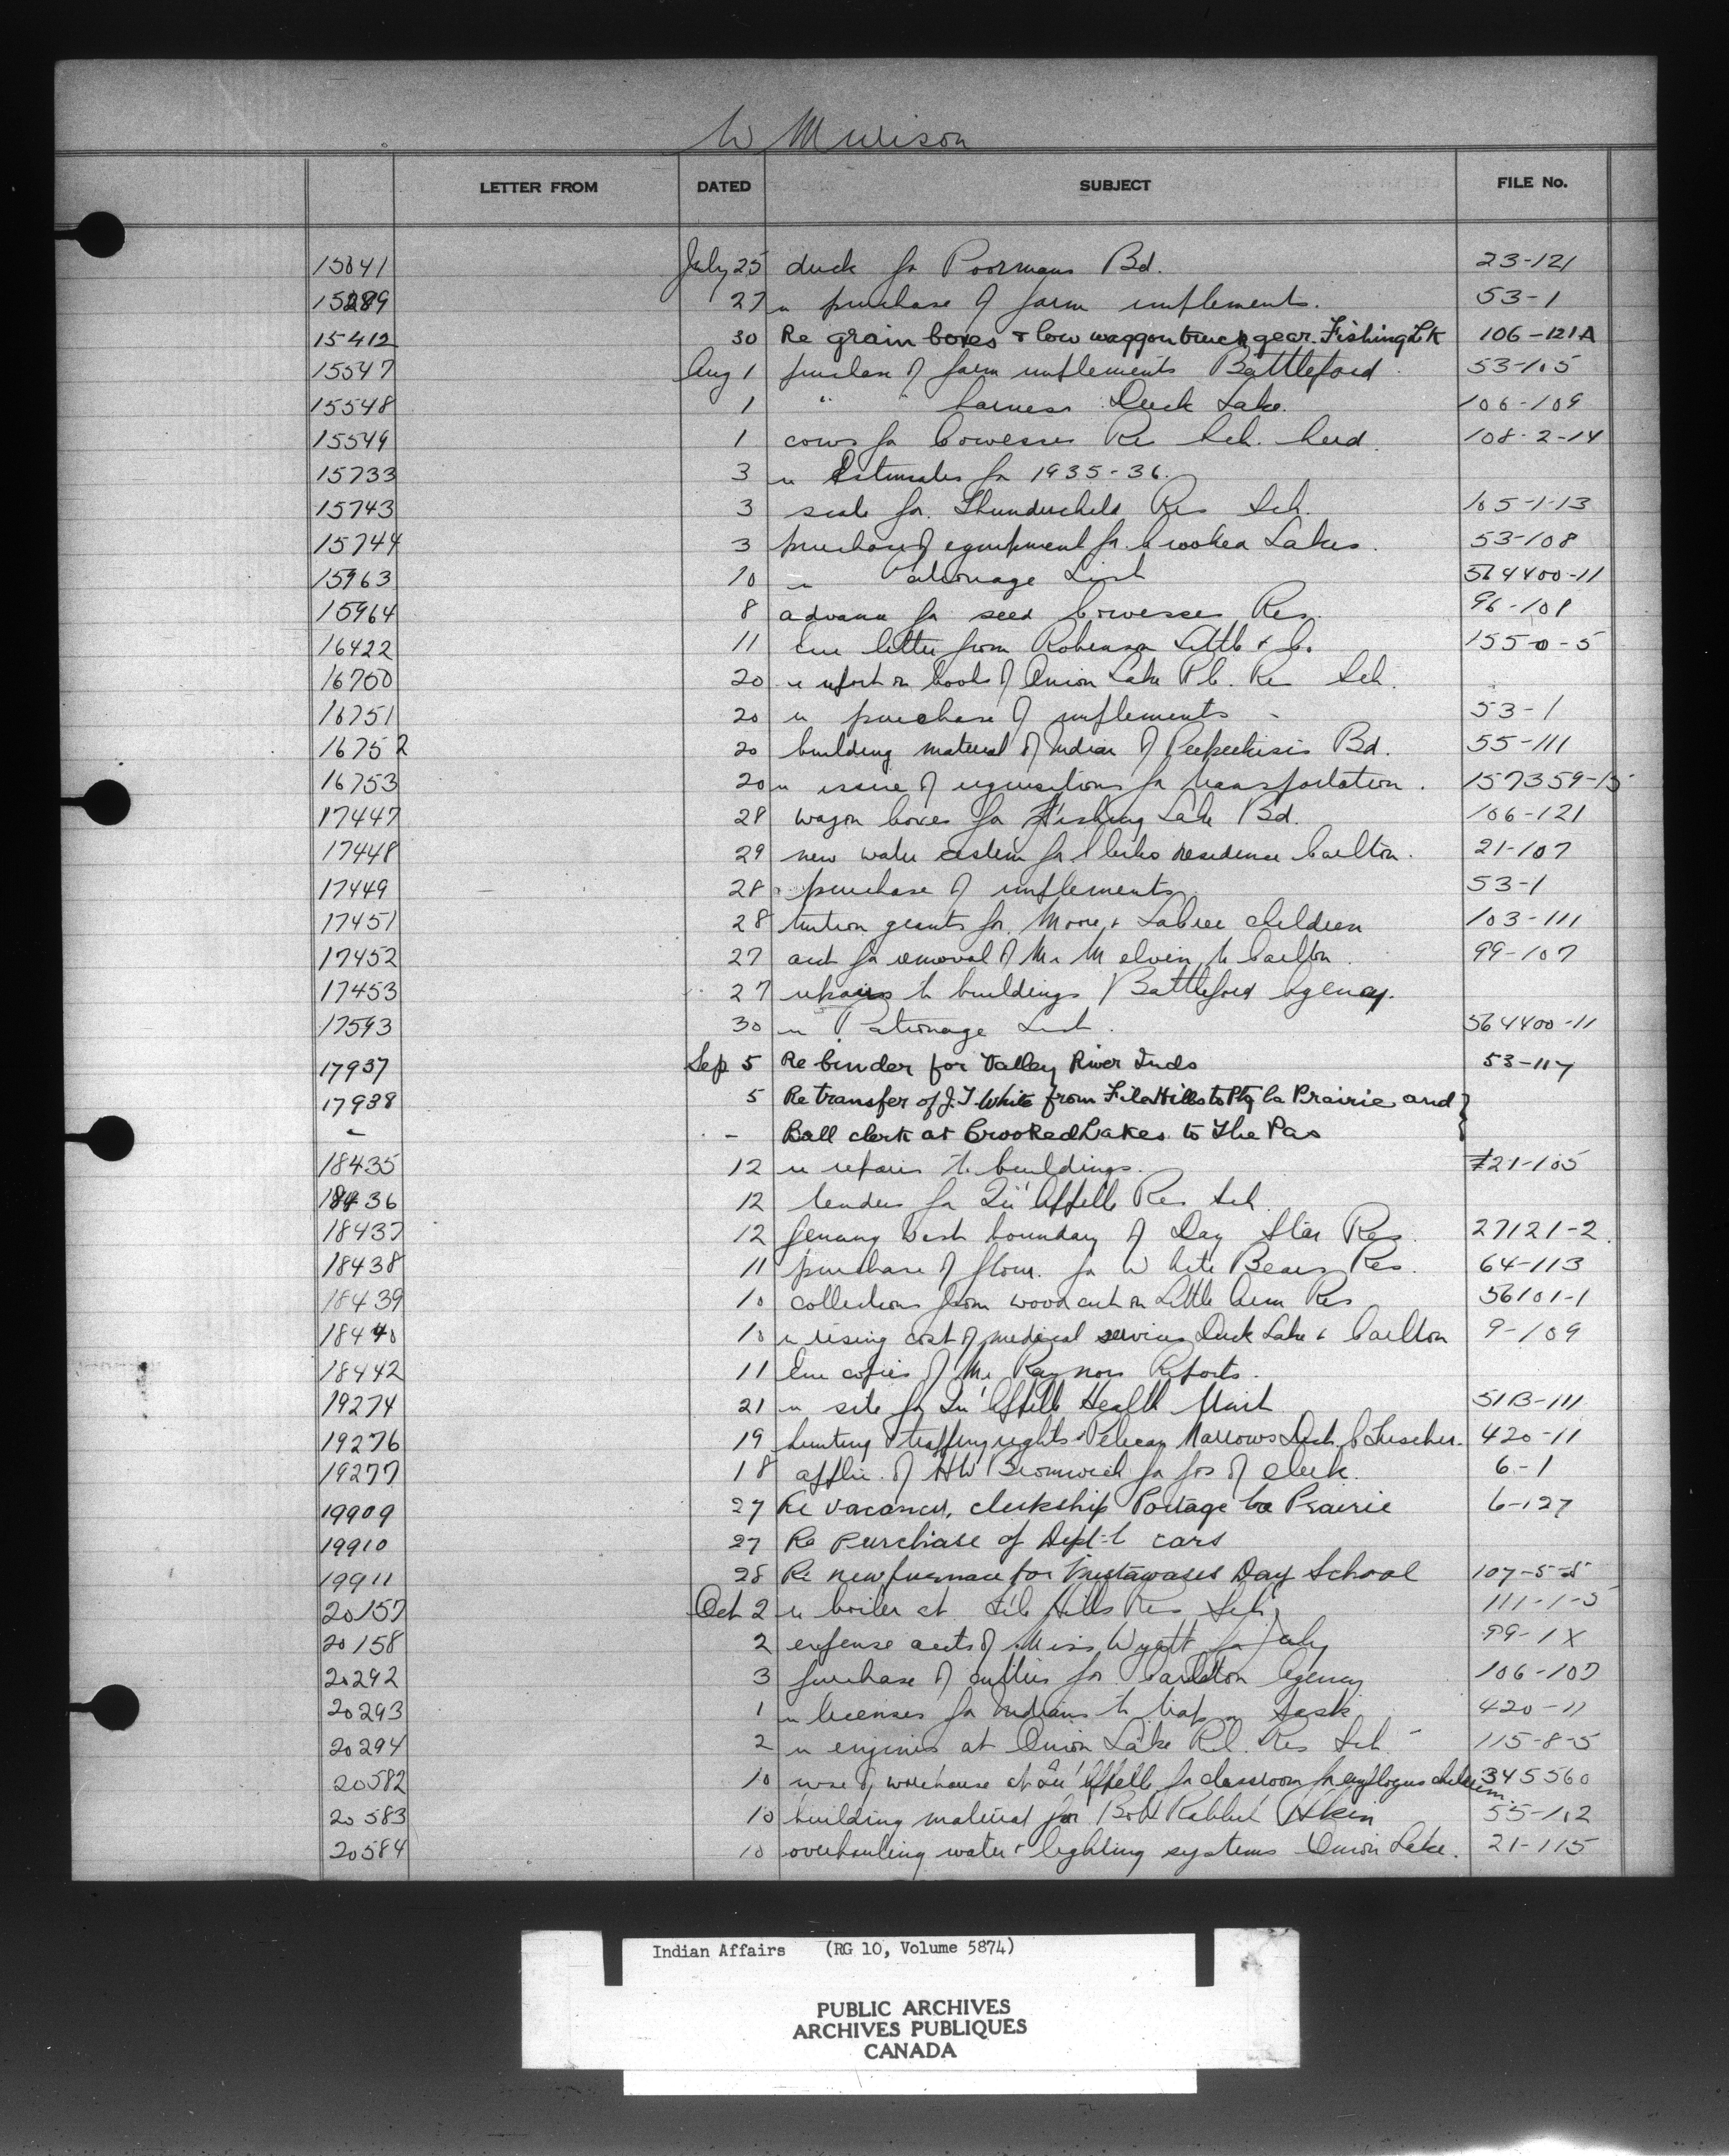 W Murison
LETTER FROM DATED SUBJECT FILE No.
15041 July 25 duck for Poormans Bd. 23-121
15289 27 re purchase of farm implements. 53-1
15412 30 Re grain boxes & low waggon truck gear. Fishing Lk 106-121A
15547 Aug 1 purchase of farm implements Battleford 53-105
15548 1 " " harness Duck Lake. 106-109
15549 1 cows for Cowesses Res Sch. herd. 108-2-14
15733 3 re Estimates for 1935-36.
15743 3 scale for Thunderchild Res Sch. 105-1-13
15744 3 purchase of equipment for Crooked Lakes. 53-108
15963 10 re Patronage List 564400-11
15964 8 advance for seed Cowesses Res. 96-108
16422 11 Enc letter from Robinson Little & Co 155-0-5
16750 20 re report on books of Onion Lake R.C. Res Sch.
16751 20 re purchase of implements - 53-1
16752 20 building material of Indian of Peepeekisis Bd. 55-111
16753 20 re issue of requisitions for transportation. 157359-15
17447 28 wagon boxes for Fishing Lake Bd. 106-121
17448 29 new water cistern for Clerks residence Carlton. 21-107
17449 28 purchase of implements 53-1
17451 28 tuition grants for Moore & children 103-111
17452 27 acct for removal of Mr Melvin to Carlton. 99-107
17453 27 repairs to buildings Battleford Agency.
17593 30 re Patronage List. 564400-11
17937 Sep 5 Re binder for Valley River Inds 53-117
17938 5 Re transfer of J.T White from File Hills to Ptg la Prairie and }
- - Ball clerk at Crooked Lakes to The Pas
18435 12 re repairs to buildings. 21-105
18436 12 tenders for Qu'Appelle Res Sch.
18437 12 fencing West boundary of Day Star Res. 27121-2
18438 11 purchase of flour for White Bears Res. 64-113
18439 10 collections from wood cut on Little Res 56101-1
18440 10 re rising cost of medical services Duck Lake & Carlton 9-109
18442 11 Enc copies of Mr Raynors Reports.
19274 21 re site for Qu'Appelle Health Unit 51B-111
19276 19 hunting & trapping rights Pelican Narrows Dist. 420-11
19277 18 applic. of HW Bromwich for pos of clerk. 6-1
19909 27 Re vacancy, clerkship Portage la Prairie 6-127
19910 27 Re Purchase of Dept-l cars
19911 28 Re new furnace for Mistawasis Day School 107-5-5
20157 Oct 2 re boiler at File Hills Res Sch. 111-1-5
20158 2 expense accts of Miss Wyatt for July 99-1X
20292 3 purchase of cutters for Carlton Agency 106-107
20293 1 re licenses for Indians to trap in Sask 420-11
20294 2 re engines at Onion Lake R.C. Res Sch 115-8-5
20582 10 use of warehouse at Qu'Appelle for classroom for employees children. 345560
20583 10 building material for Rabbit Skin 55-102
20584 10 overhauling water & lighting systems Onion Lake. 21-115
Indian Affairs (RG 10, Volume 5874)
PUBLIC ARCHIVES
ARCHIVES PUBLIQUES
CANADA